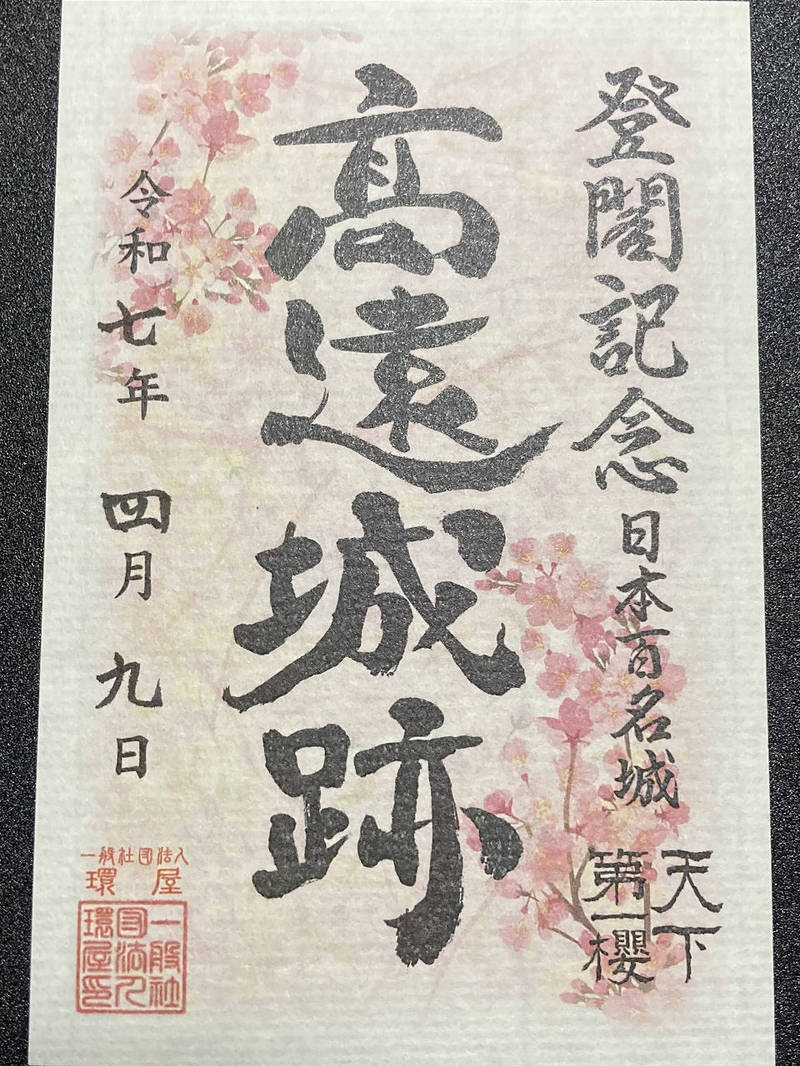 登閣記念 日本百名城
天下
第一櫻
高遠城跡
令和七年 四月九日
一般社団法人
環屋
一般社
団法人
環屋印